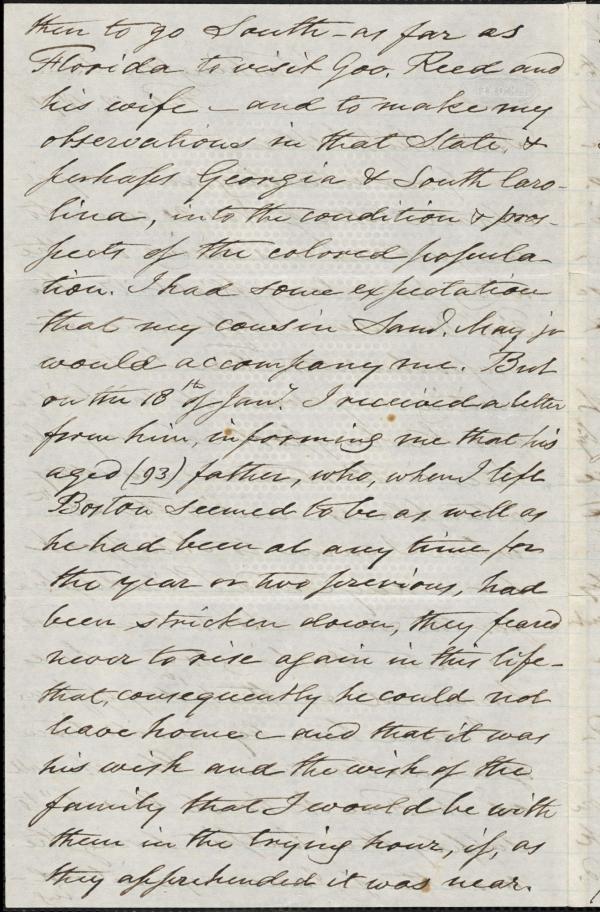 then to go South – as far as
Florida to visit Geo. Reed and
his wife – and to make my
observations in that State, &
perhaps Georgia & South Caro-
lina, into the condition & pros-
pects of the colored popula-
tion. I had some expectation
that my cousin Saml. May jr
would accompany me. But
on the 18th of Jany. I received a letter
from him, informing me that his
aged (93) father, who, when I left
Boston seemed to be as well as
he had been at any time for
the year or two previous, had
been stricken down, they feared
never to rise again in this life –
that, consequently he could not
leave home – and that it was
his wish and the wish of the
family that I would be with
them in the trying hour, if, as
they apprehended it was near.